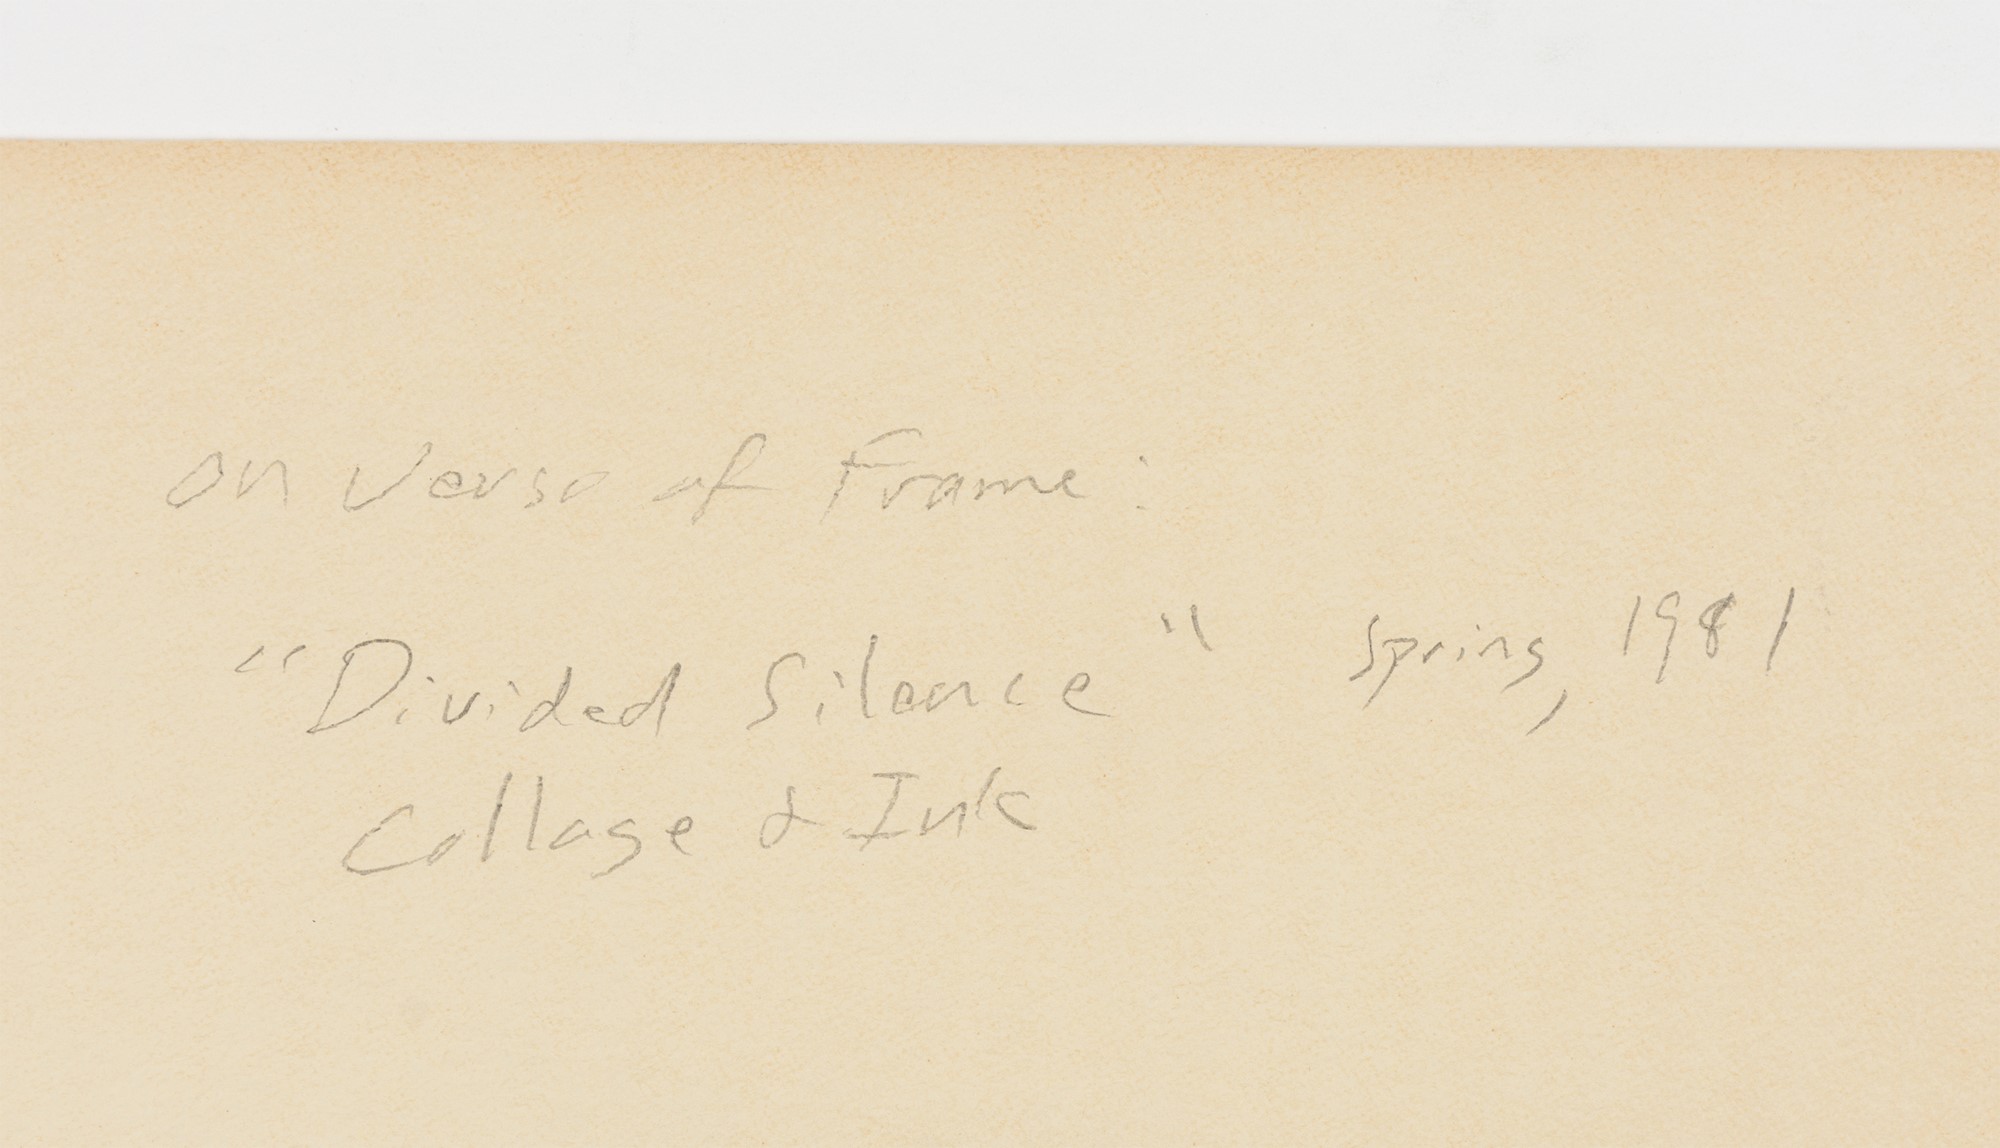 on Verso of Frame:
"Divided Silence" Spring, 1981
Collage & Ink